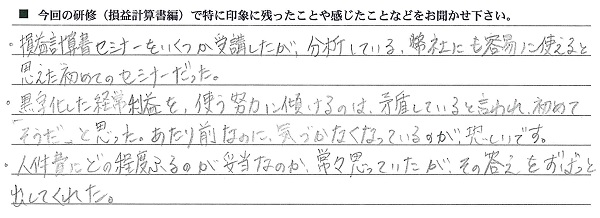 ■ 今回の研修（損益計算書編）で特に印象に残ったことや感じたことなどをお聞かせ下さい。
・損益計算書セミナーをいくつか受講したが、分析している、弊社にも容易に使えると
思えた初めてのセミナーだった。
・黒字化した経常利益を、使う努力に傾けるのは、矛盾していると言われ、初めて
「そうだ」と思った。あたり前なのに、気づかなくなっているのが、恐しいです。
・人件費にどの程度ふるのが妥当なのか、常々思っていたが、その答えをずばっと
出してくれた。